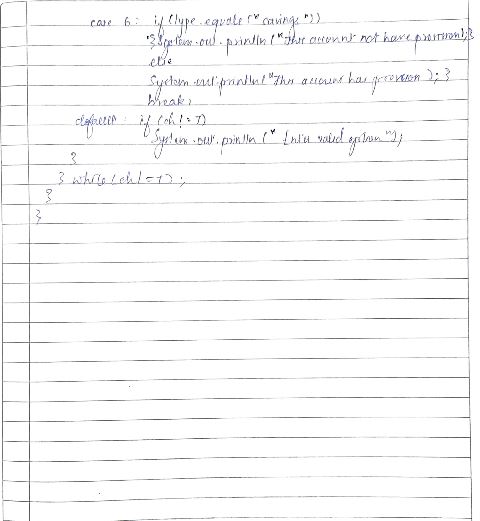 case 6: if (type.equals("savings"))
{System.out.println("This account not have provision");}
else
System.out.println("This account has provision"); }
break;
default: if (ch!=7)
System.out.println("Enter valid option");
}
} while(ch!=7);
}
}